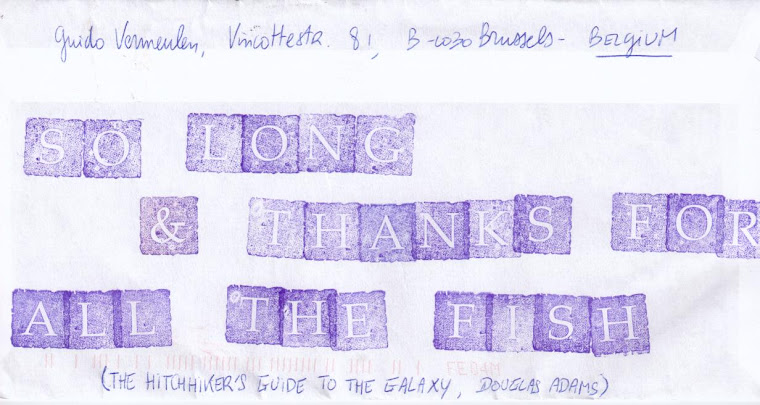 Guido Vermeulen, Vincottestr. 81, B-1030 Brussels - BELGIUM
SO LONG
& THANKS FOR
ALL THE FISH
(THE HITCHHIKER'S GUIDE TO THE GALAXY, DOUGLAS ADAMS)